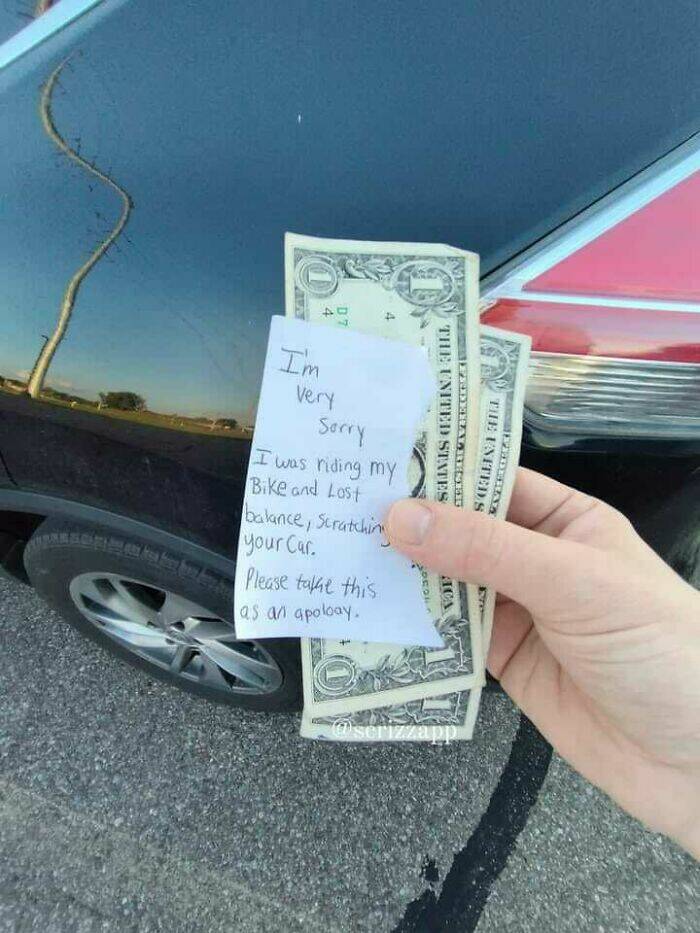 I'm
Very
Sorry
I was riding my
Bike and Lost
balance, scratching
your Car.
Please take this
as an apoloay.
THE UNITED STATES
1
1
1
1
4
D7
4
THE UNITED S
1
@scrizzapp